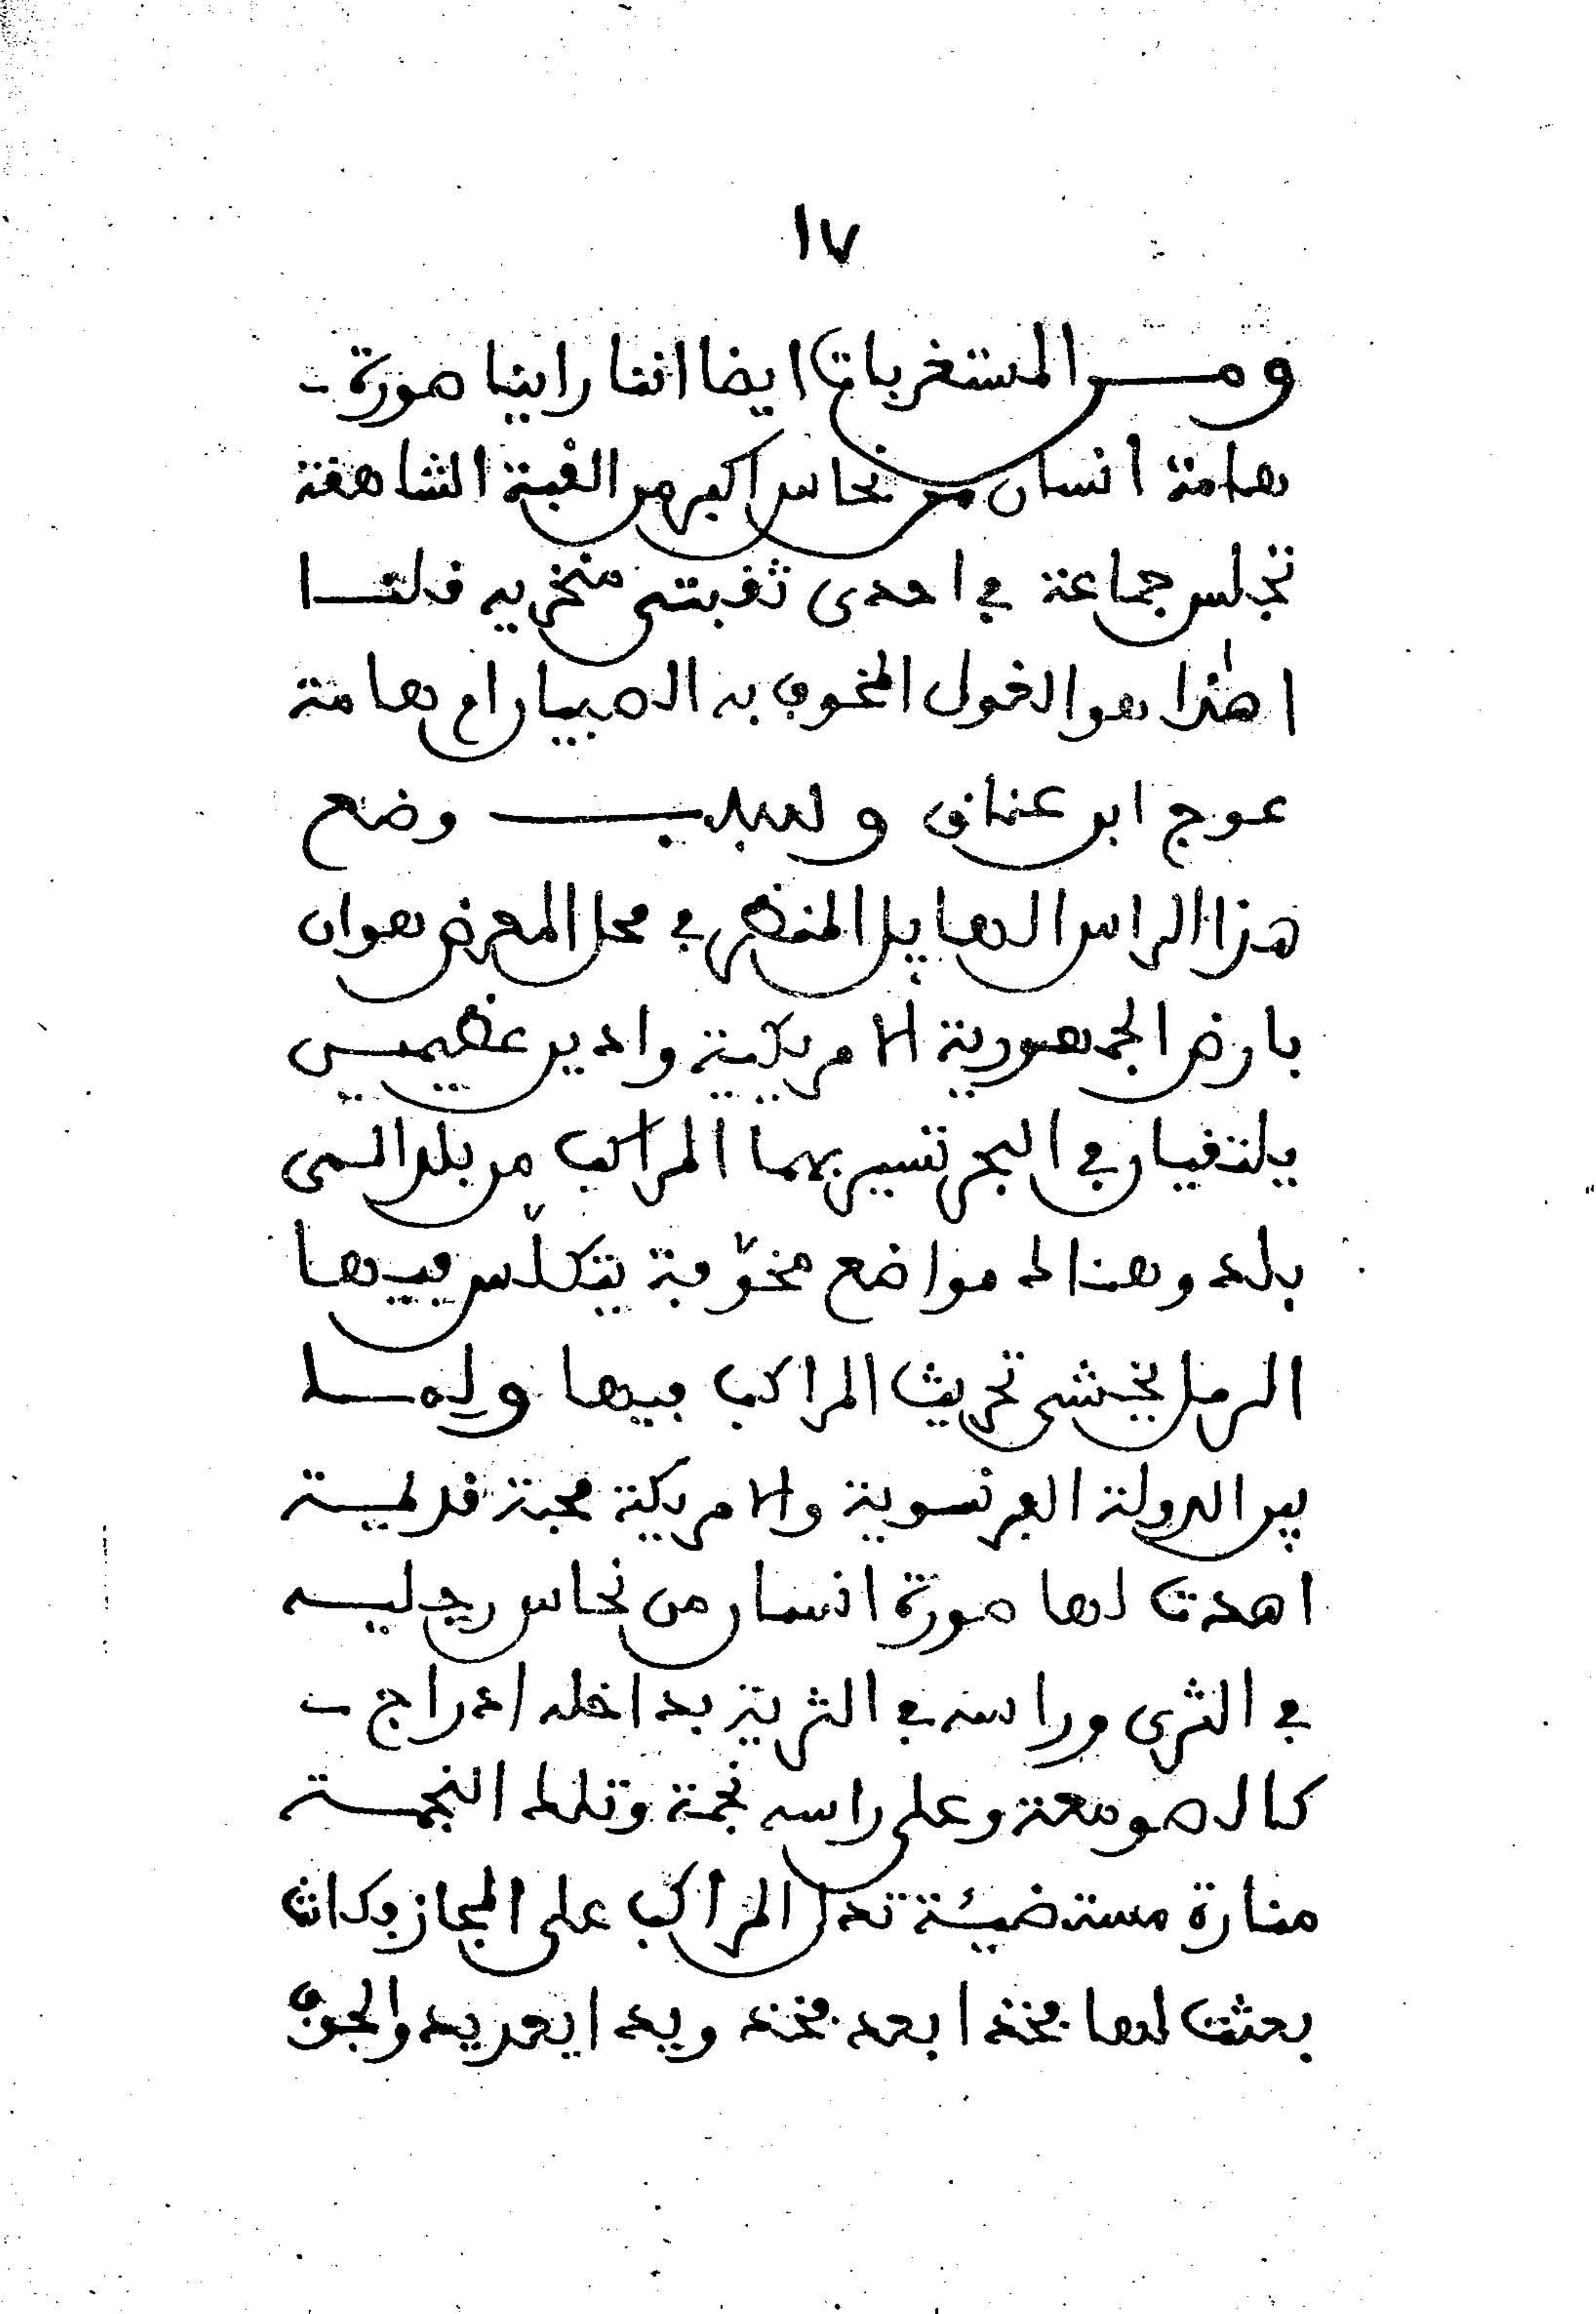 ١٧
ومن المستغربات ايضا اننا راينا صورة
هامة انسان من نحاس اكبر من القبة الشاهقة
تجلس جماعة في احدى ثقبتي منخريه قلنا
اهٰذا هو الغول المخوف به الصبيان ام هامة
عوج ابن عناق ولسبب وضع
هذا الراس الهايل المنظر في محل المعرض هو ان
بارض الجمهورية الامريكية واديين عظيمين
يلتقيان في البحر تسير بهما المراكب من بلد الى
بلد وهنالك مواضع مخوّفة يتكدّس فيها
الرمل يخشى تحريث المراكب فيها ولما
بين الدولة الفرنسوية والامريكة محبة قديمة
اهدت لها صورة انسان من نحاس رجليه
في الثرى وراسه في الثرية بداخله ادراج
كالصومعة وعلى راسه نجمة وتلك النجمة
منارة مستضيئة تدل المراكب على المجاز فكانت
بعثت لها فخذا بعد فخذ ويدا بعد يد والجوف